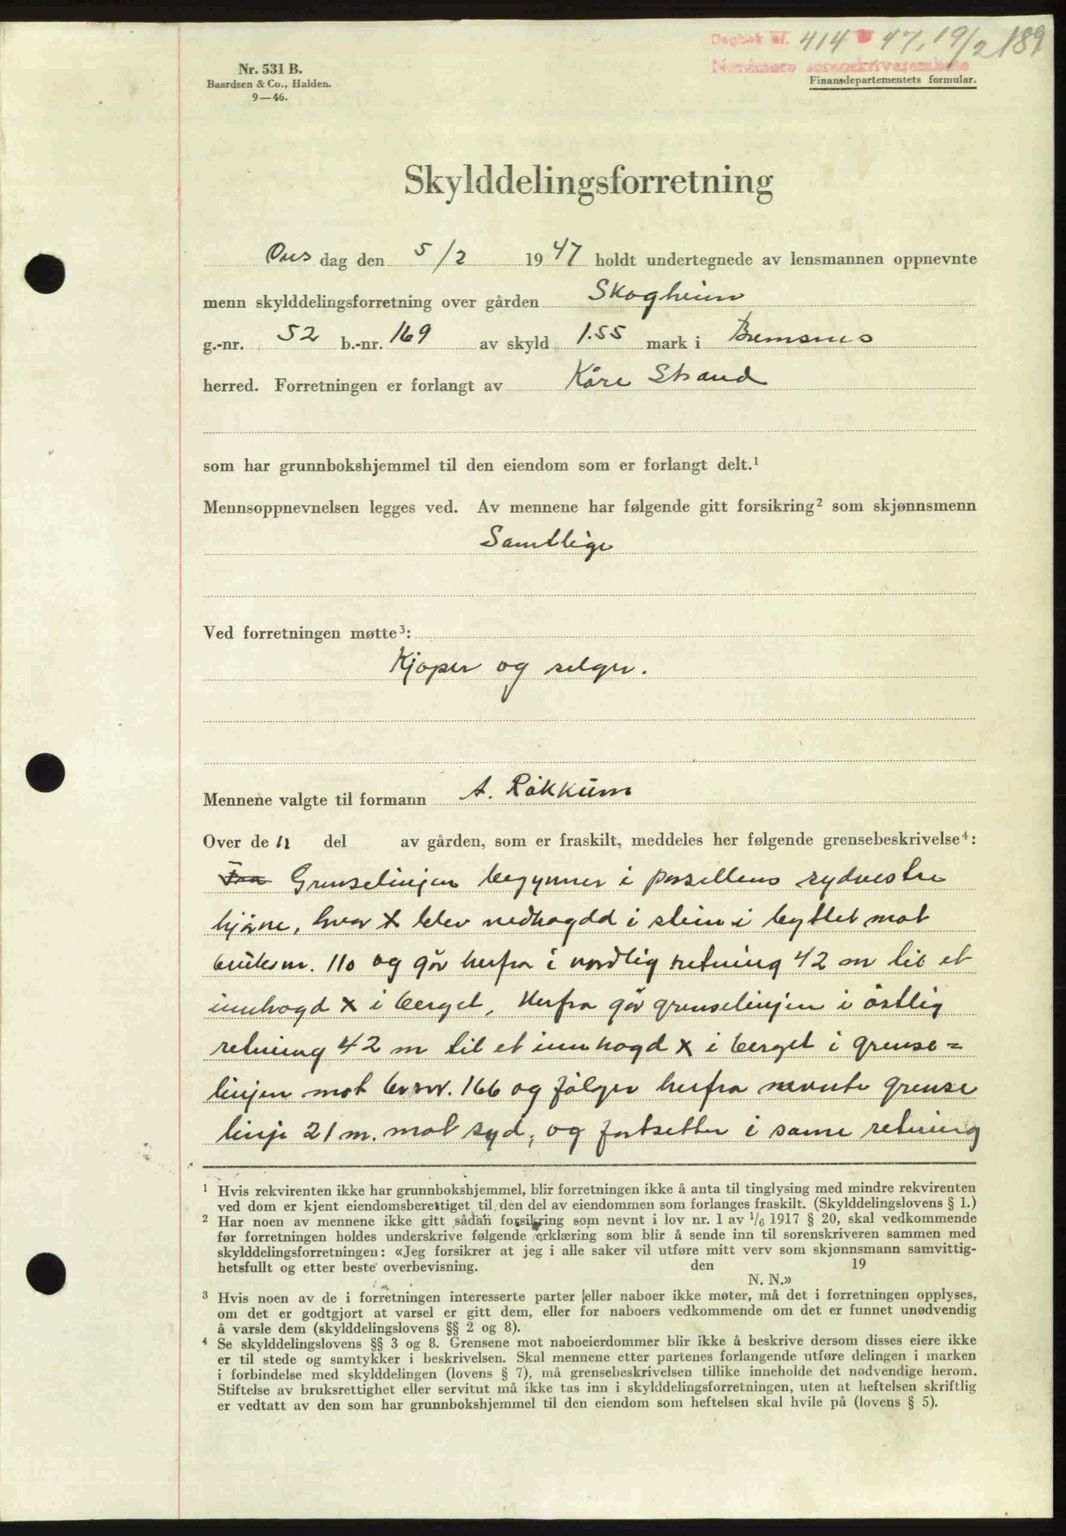 Dagbok nr. 414 47, 19/2 189
Nordmøre sorenskriverembete
Nr. 531 B.
Baardsen & Co., Halden.
9—46.
Finansdepartementets formular.
Skylddelingsforretning
Ons dag den 5/2 1947 holdt undertegnede av lensmannen oppnevnte
menn skylddelingsforretning over gården Skogheim
g.-nr. 52 b.-nr. 169 av skyld 1.55 mark i Bremsnes
herred. Forretningen er forlangt av Kåre Strand
som har grunnbokshjemmel til den eiendom som er forlangt delt.¹
Mennsoppnevnelsen legges ved. Av mennene har følgende gitt forsikring² som skjønnsmenn
Samtlige
Ved forretningen møtte³:
Kjøper og selger.
Mennene valgte til formann A. Røkkum
Over de n del av gården, som er fraskilt, meddeles her følgende grensebeskrivelse⁴:
Fra Grenselinjen begynner i parsellens sydvestre
hjørne, hvor X blev nedhogdd i stein i byttet mot
bruksnr. 110 og går herfra i nordlig retning 42 m til et
innhogd X i berget, Herfra går grenselinjen i østlig
retning 42 m til et innhogd X i berget i grense=
linjen mot br.nr. 166 og følger herfra nevnte grense
linje 21 m. mot syd, og fortsetter i samme retning
¹ Hvis rekvirenten ikke har grunnbokshjemmel, blir forretningen ikke å anta til tinglysing med mindre rekvirenten
ved dom er kjent eiendomsberettiget til den del av eiendommen som forlanges fraskilt. (Skylddelingslovens § 1.)
² Har noen av mennene ikke gitt sådan forsikring som nevnt i lov nr. 1 av 1/6 1917 § 20, skal vedkommende
før forretningen holdes underskrive følgende erklæring som blir å sende inn til sorenskriveren sammen med
skylddelingsforretningen: «Jeg forsikrer at jeg i alle saker vil utføre mitt verv som skjønnsmann samvittig-
hetsfullt og etter beste overbevisning. den 19
N. N.»
³ Hvis noen av de i forretningen interesserte parter eller naboer ikke møter, må det i forretningen opplyses,
om det er godtgjort at varsel er gitt dem, eller for naboers vedkommende om det er funnet unødvendig
å varsle dem (skylddelingslovens §§ 2 og 8).
⁴ Se skylddelingslovens §§ 3 og 8. Grensene mot naboeierdommer blir ikke å beskrive dersom disses eiere ikke
er til stede og samtykker i beskrivelsen. Skal mennene etter partenes forlangende utføre delingen i marken
i forbindelse med skylddelingen (lovens § 7), må grensebeskrivelsen tillike inneholde det nødvendige herom.
Stiftelse av bruksrettighet eller servitut må ikke tas inn i skylddelingsforretningen, uten at heftelsen skriftlig
er vedtatt av den som har grunnbokshjemmel til den eiendom som heftelsen skal hvile på (lovens § 5).